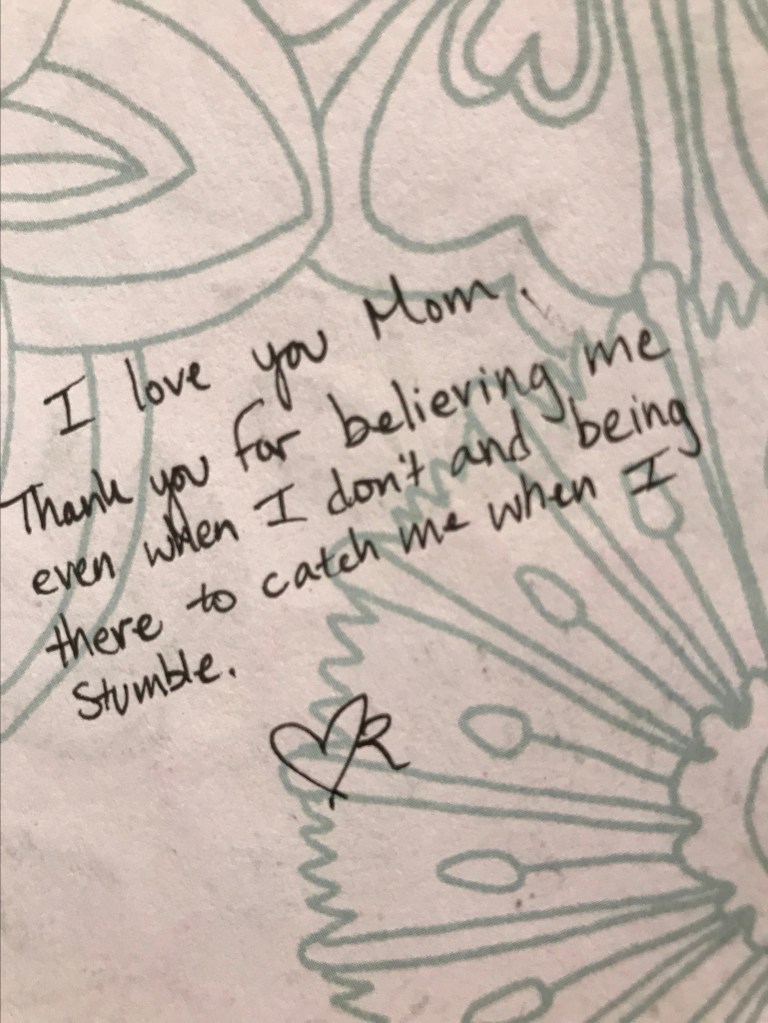 I love you Mom.
Thank you for believing me
even when I don't and being
there to catch me when I
stumble.
R